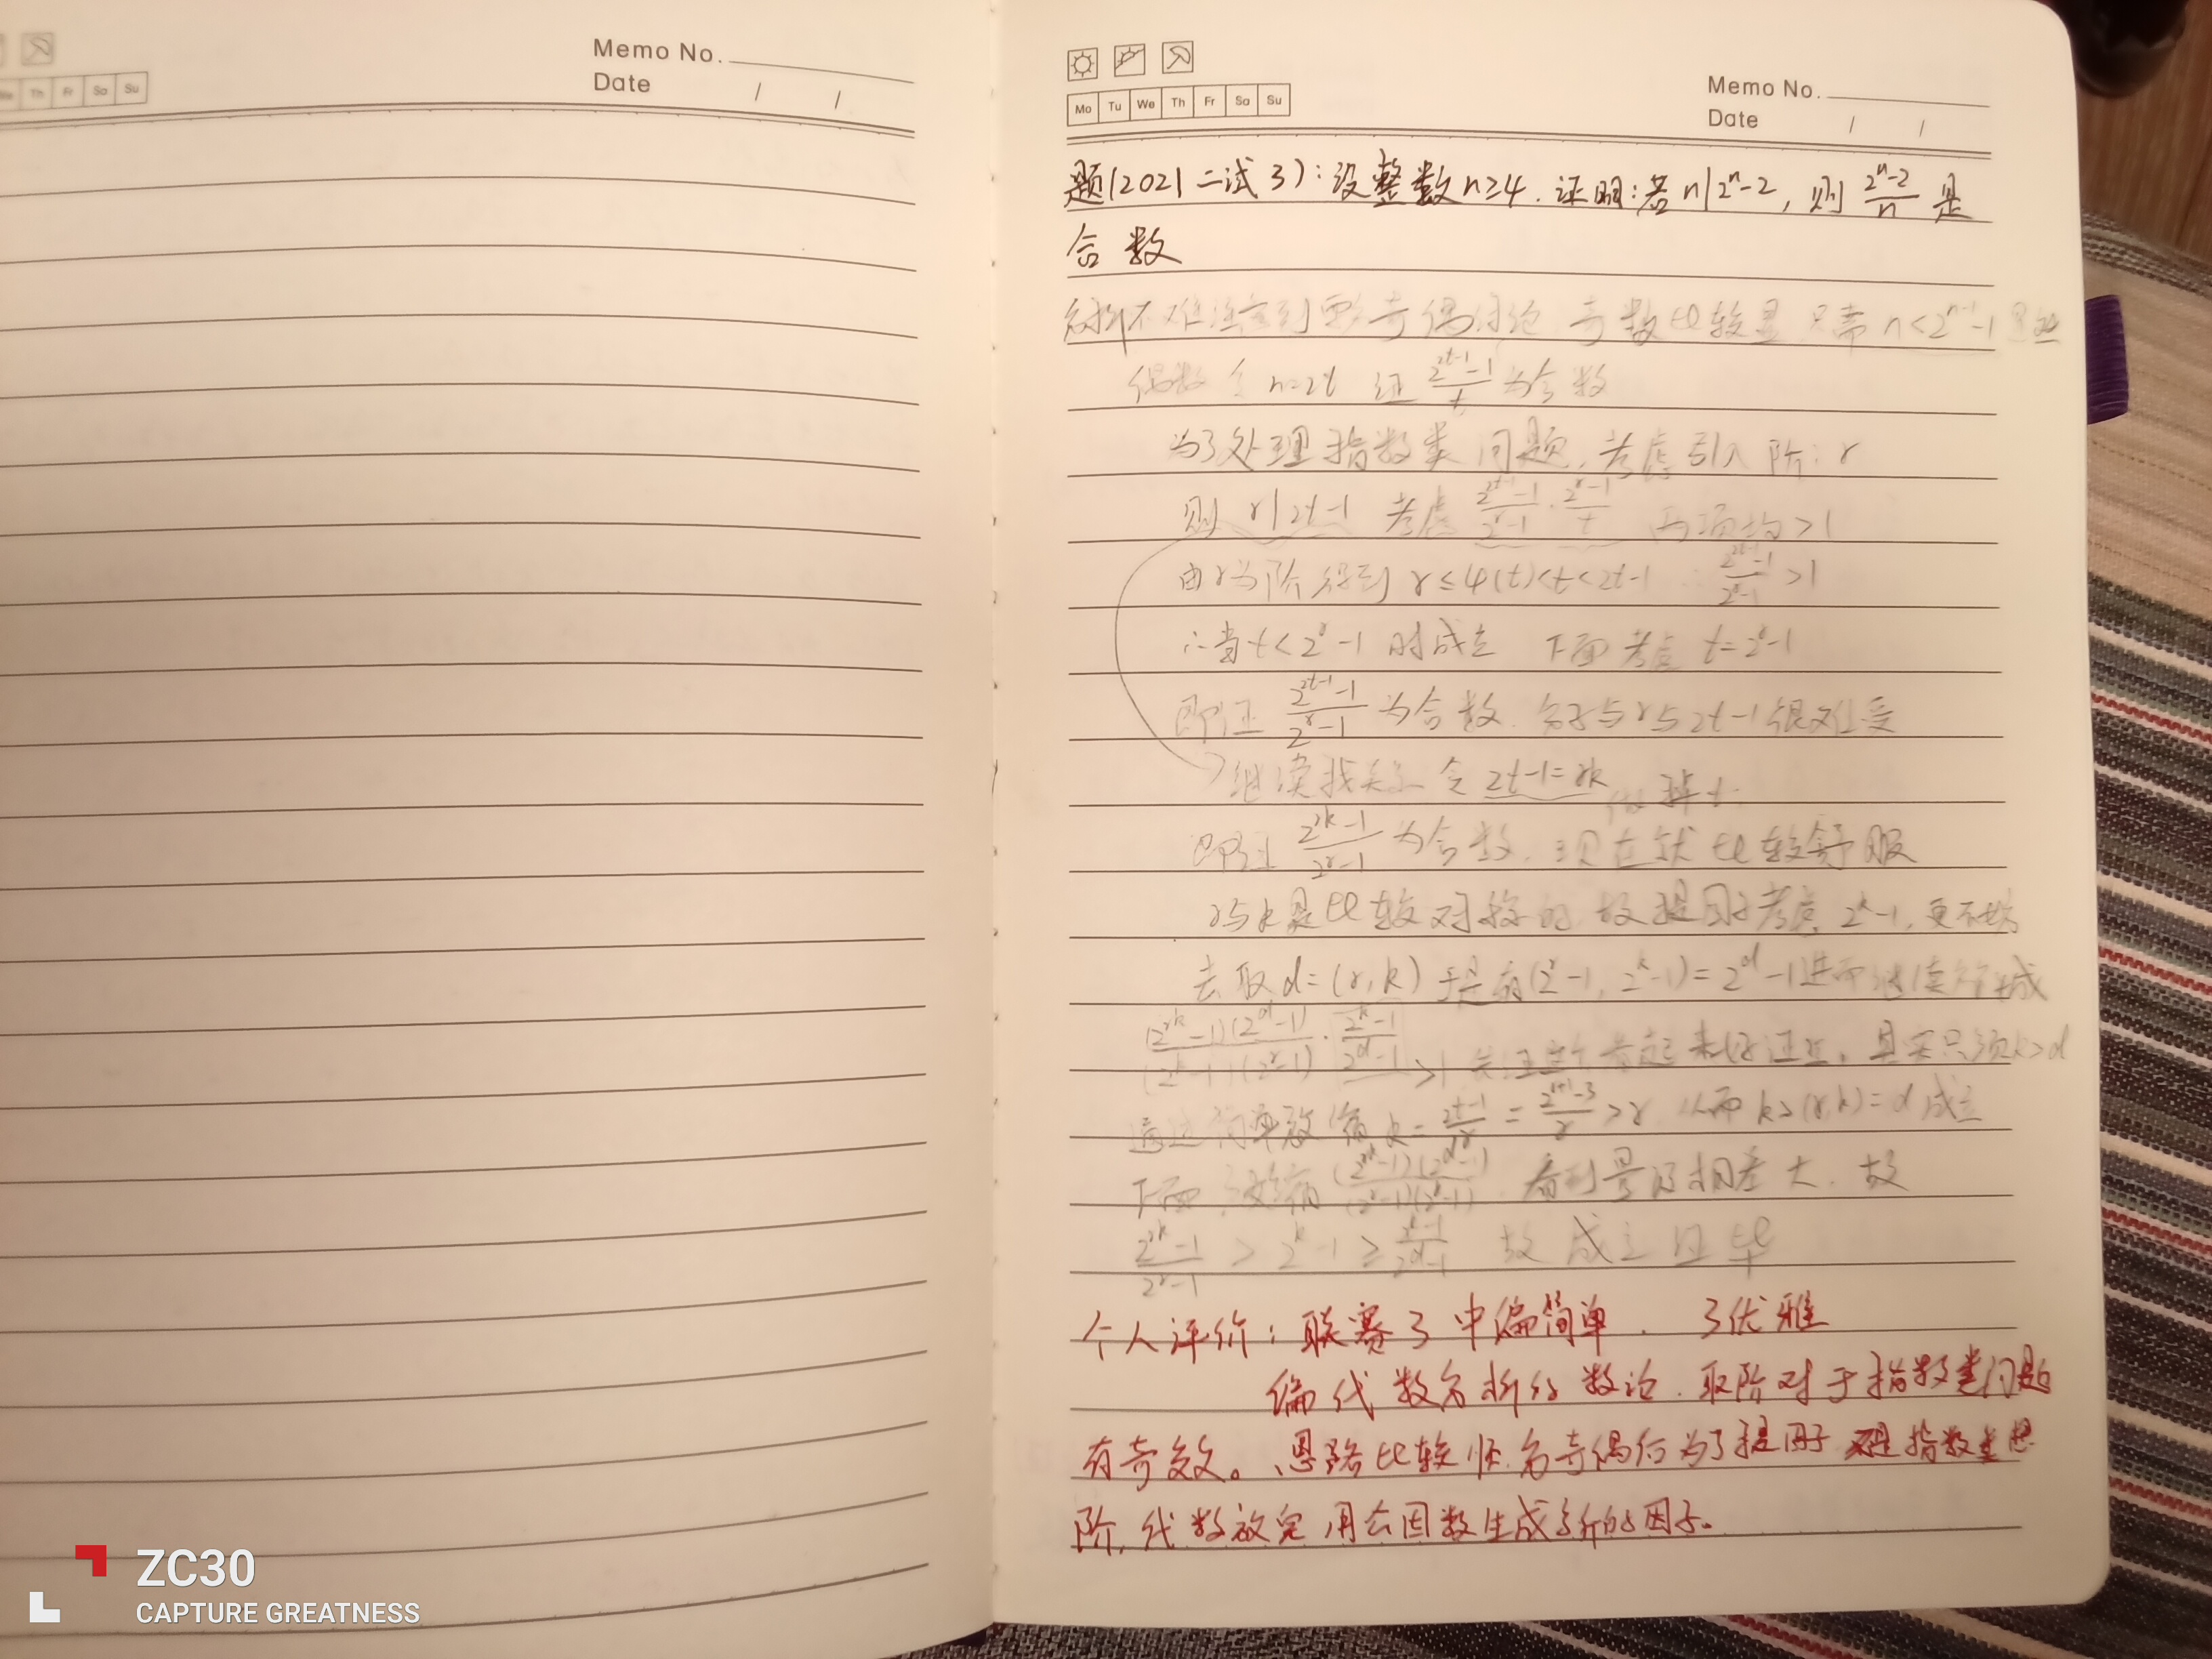 Memo No.
Date / /
We Th Fr Sa Su
Memo No.
Date / /
Mo Tu We Th Fr Sa Su
题(2021二试3):设整数n≥4.证明:若n|2ⁿ-2,则 (2ⁿ-2)/n 是
合数
分析不难注意到要奇偶讨论 奇数比较显 只需 n<2ⁿ⁻¹-1
偶数令 n=2t 证 (2²ᵗ⁻¹-1)/t 为合数
为了处理指数类问题,考虑引入阶:r
则 r|2t-1 考虑 (2²ᵗ⁻¹-1)/(2ʳ-1)·(2ʳ-1)/t 两项均>1
由r为阶得到 r≤φ(t)<t<2t-1 ∴ (2²ᵗ⁻¹-1)/(2ʳ-1)>1
∴当t<2ʳ-1 时成立 下面考虑 t=2ʳ-1
即证 (2²ᵗ⁻¹-1)/(2ʳ-1) 为合数. 与r与2t-1很难受
继续找关系 令 2t-1=rk 做掉t.
即证 (2ʳᵏ-1)/(2ʳ-1) 为合数.现在就比较舒服
r与k是比较对称的 故提因子考虑 2ᵏ-1,更不妨
去取 d=(r,k) 于是有(2ʳ-1, 2ᵏ-1)=2ᵈ-1进而继续
(2ʳᵏ-1)(2ᵈ-1)/(2ᵏ-1)(2ʳ-1)·(2ᵏ-1)/(2ᵈ-1) >1 k>d
通过简单放缩 k=(2t-1)/r=(2ʳ⁺¹-3)/r>r 从而 k>(r,k)=d 成立
下面 放缩 (2ʳᵏ-1)(2ᵈ-1)/(2ʳ-1)(2ᵏ-1) 看到量级相差大.故
(2ʳᵏ-1)/(2ʳ-1) > 2ᵏ-1 ≥ (2ᵏ-1)/(2ᵈ-1) 故成立 证毕
个人评价:联赛3中偏简单. 3优雅
偏代数分析的数论.取阶对于指数类问题
有奇效。思路比较 分奇偶后为了提因子 指数
阶,代数放完,用公因数生成新的因子。
ZC30
CAPTURE GREATNESS